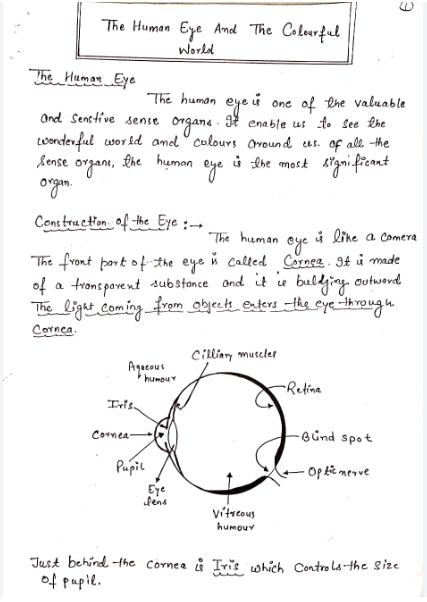 ①
The Human Eye And The Colourful
World
The Human Eye
The human eye is one of the valuable
and senstive sense organs. It enable us to see the
wonderful world and colours around us. of all the
sense organs, the human eye is the most significant
organ.
Construction of the Eye :→
The human eye is like a camera
The front part of the eye is called Cornea. It is made
of a transparent substance and it is buldging outward
The light coming from objects enters the eye through
Cornea.
Cilliary muscles
Aqueous
humour
Retina
Iris
Cornea
Blind spot
Pupil
Optic nerve
Eye
lens
Vitreous
humour
Just behind the cornea is Iris which Controls the size
of pupil.